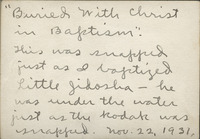 "Buried With Christ
in Baptism".
This was snapped
just as I baptized
Little Jikosha – he
was under the water
just as the Kodak was
snapped. Nov. 22, 1931.